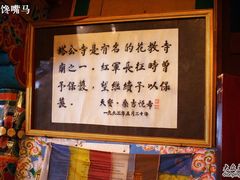 馋嘴马
塔公寺是有名的花教寺
庙之一，红軍長征時曾
予保護，望继續予以保
護。
天寶·桑吉悦希
一九八三年五月二十日